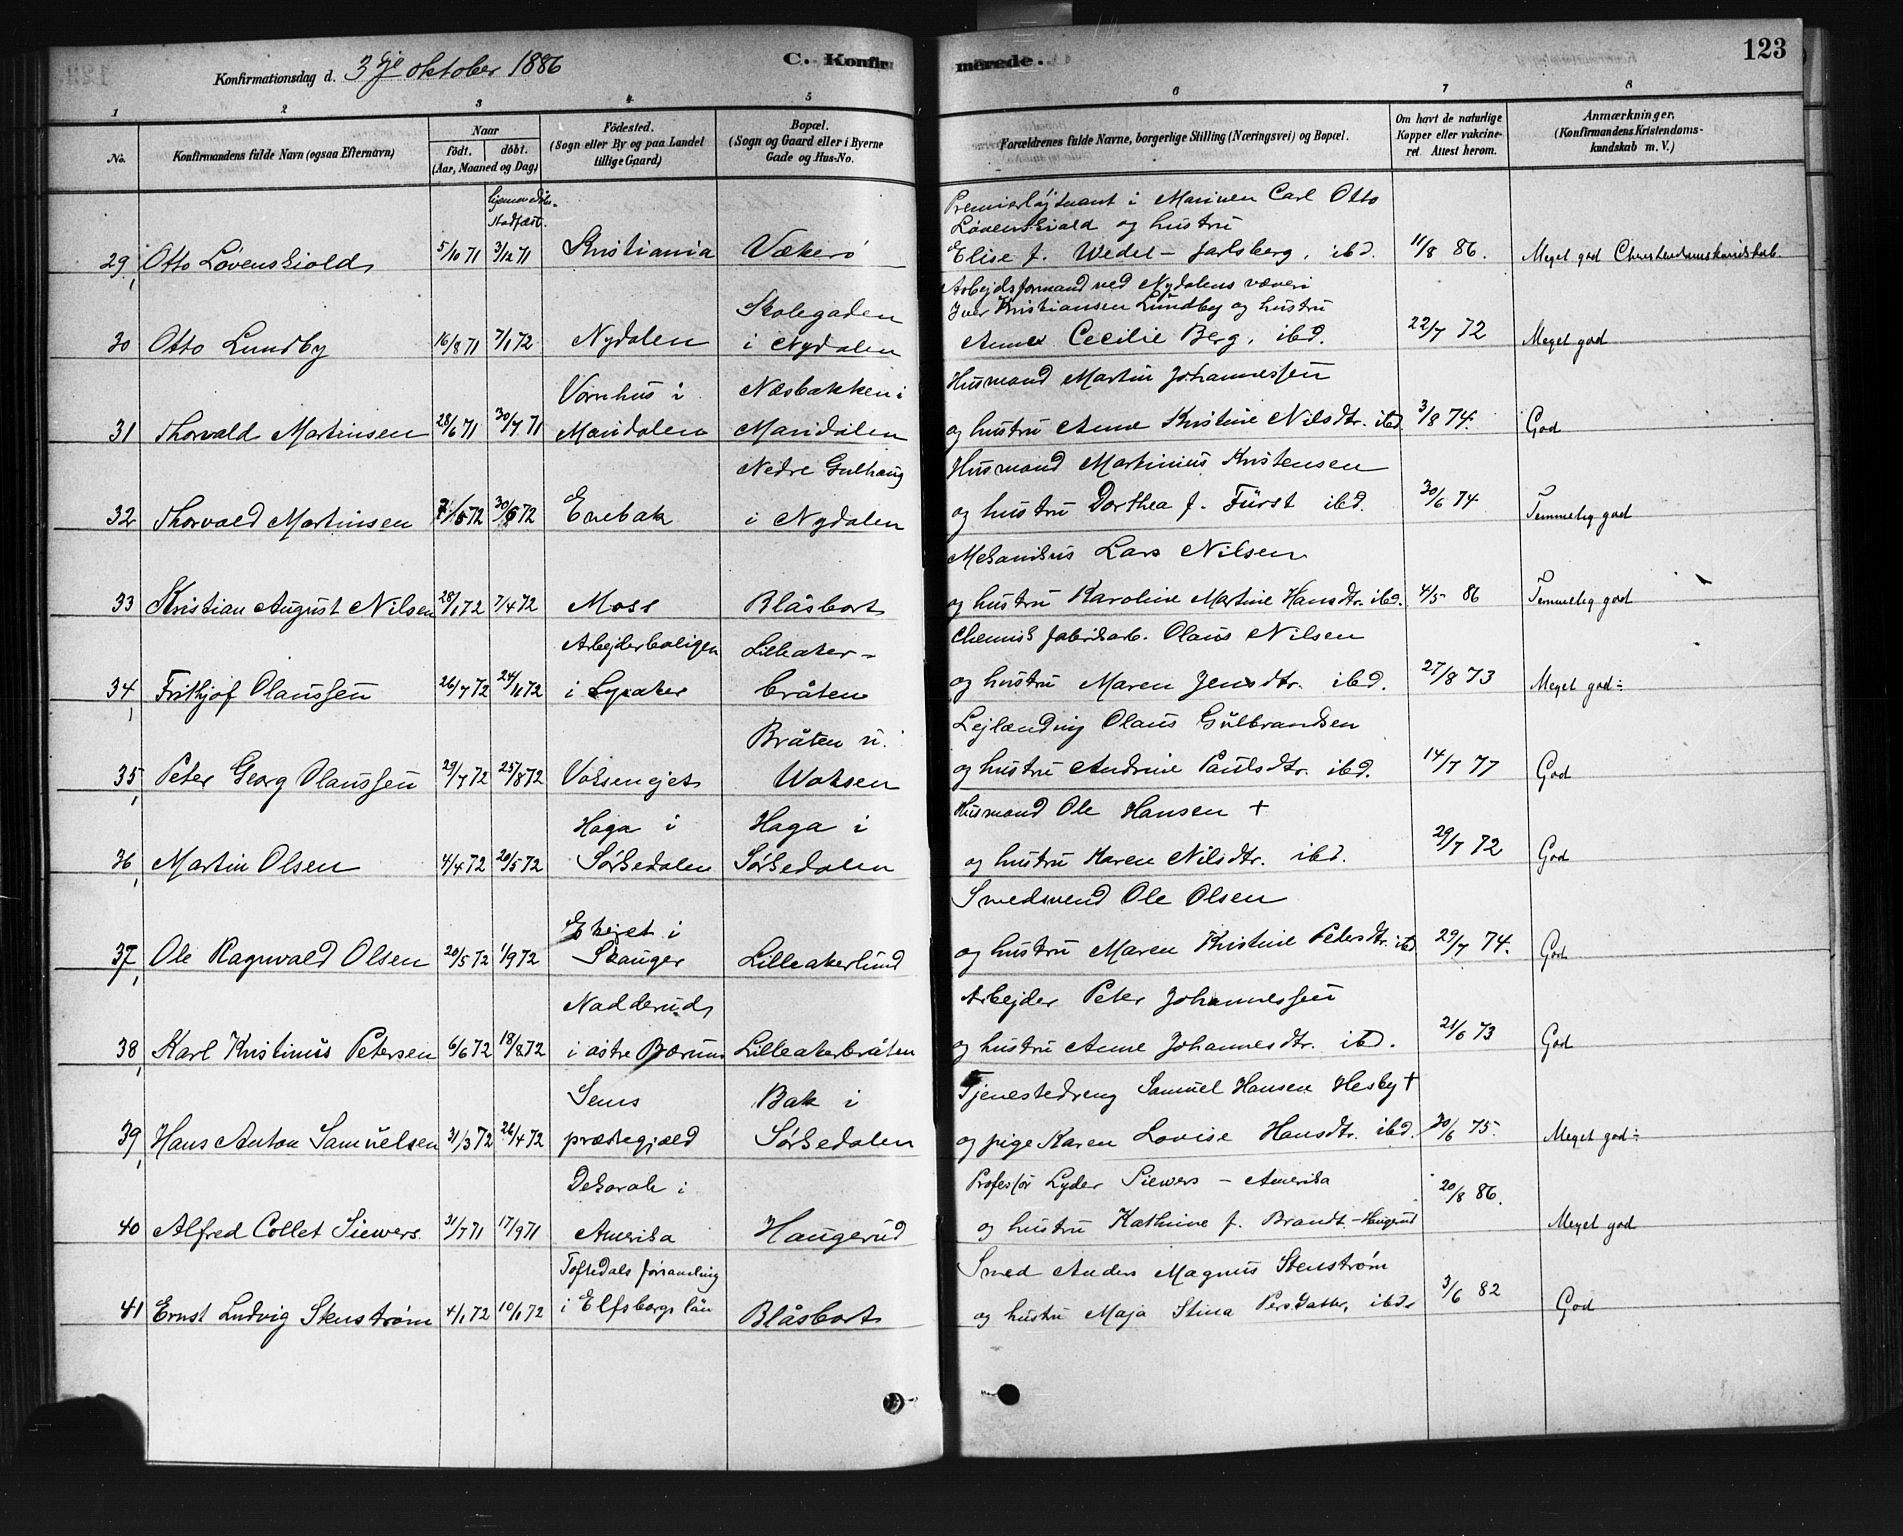 Konfirmationsdag d. 3dje oktober 1886
C. Konfir
merede.
123
1 2 3 4 5 6 7 8
No.
Konfirmandens fulde Navn (ogsaa Efternavn)
Naar
födt. döbt.
(Aar, Maaned og Dag)
Födested.
(Sogn eller By og paa Landet
tillige Gaard)
Bopæl.
(Sogn og Gaard eller i Byerne
Gade og Hus-No.
Forældrenes fulde Navne, borgerlige Stilling (Næringsvei) og Bopæl.
Om havt de naturlige
Kopper eller vakcine-
ret Attest herom.
Anmærkninger,
(Konfirmandens Kristendoms-
kundskab m. V.)
hjemmedøbt
stadfæst.
Premierløjtnant i Marinen Carl Otto
Løvenskiold og hustru
29, Otto Løvenskiold 5/10 71 3/12 71 Kristiania Vækerö Elise f. Wedel-Jarlsberg, ibd. 11/8 86. Meget god Christendomskundskab.
Arbejdsformand ved Nydalens væveri
Skolegaden Iver Kristiansen Lundby og hustru
30 Otto Lundby 16/8 71 7/1 72 Nydalen i Nydalen Anne Cecilie Berg, ibd. 22/7 72 Meget god
Vornhus i Næsbakken i Husmand Martin Johannessen
31 Thorvald Martinsen 28/6 71 30/7 71 Maridalen Maridalen og hustru Anne Kristine Nilsdtr. ibd 3/8 74. God
Nedre Gulhaug Husmand Martinius Kristensen
32 Thorvald Martinsen 30/6 72 Enebak i Nydalen og hustru Dorthea f. Fürst ibd. 30/6 74 Temmelig god
Mekanikus Lars Nilsen
33 Kristian August Nilsen 28/1 72 7/4 72 Moss Blåsbort og hustru Karoline Martine Hansdtr. ibd. 4/5 86 Temmelig god
Arbejderboligen Lilleaker- Chemisk fabrikarb. Olaus Nilsen
34, Frithjof Olaussen 26/7 72 24/11 72 i Lysaker bråten og hustru Maren Jensdtr. ibd. 27/8 73 Meget god÷
Bråten u. Lejlænding Olaus Gulbrandsen
35, Peter Georg Olaussen 29/7 72 25/8 72 Voksenejet Woksen og hustru Andrine Paulsdtr. ibd. 14/7 77 God
Haga i Haga i Husmand Ole Hansen +
36, Martin Olsen 4/4 72 20/5 72 Sørkedalen Sørkedalen og hustru Karen Nilsdtr. ibd. 29/7 72 God
Smedsvend Ole Olsen
37, Ole Ragnvald Olsen 20/5 72 1/9 72 i Skauger Lilleakerlund og hustru Maren Kristine Petersdtr. ibd 29/7 74. God
Nadderud Arbejder Peter Johannessen
38, Karl Kristinus Petersen 6/6 72 18/8 72 i østre Bærum Lilleakerbråten og hustru Anne Johannesdtr. ibd. 21/6 73 God
Sems Bak i Tjenestedreng Samuel Hansen Hesby +
39, Hans Anton Samuelsen 31/3 72 26/4 72 præstegjæld Sørkedalen og pige Karen Lovise Hansdtr. ibd. 30/6 75. Meget god÷
Dekorah i Professor Lyder Siewers - Amerika
40 Alfred Collet Siewers. 31/7 71 17/9 71 Amerika Haugerud og hustru Kathrine f. Brandt - Haugerud 20/8 86. Meget god
Toftedals församling Smed Anders Magnus Stenstrøm
41 Ernst Ludvig Stenstrøm 4/1 72 10/1 72 i Elfsborgs län Blåsbort og hustru Maja Stina Persdatter, ibd. 3/6 82 God